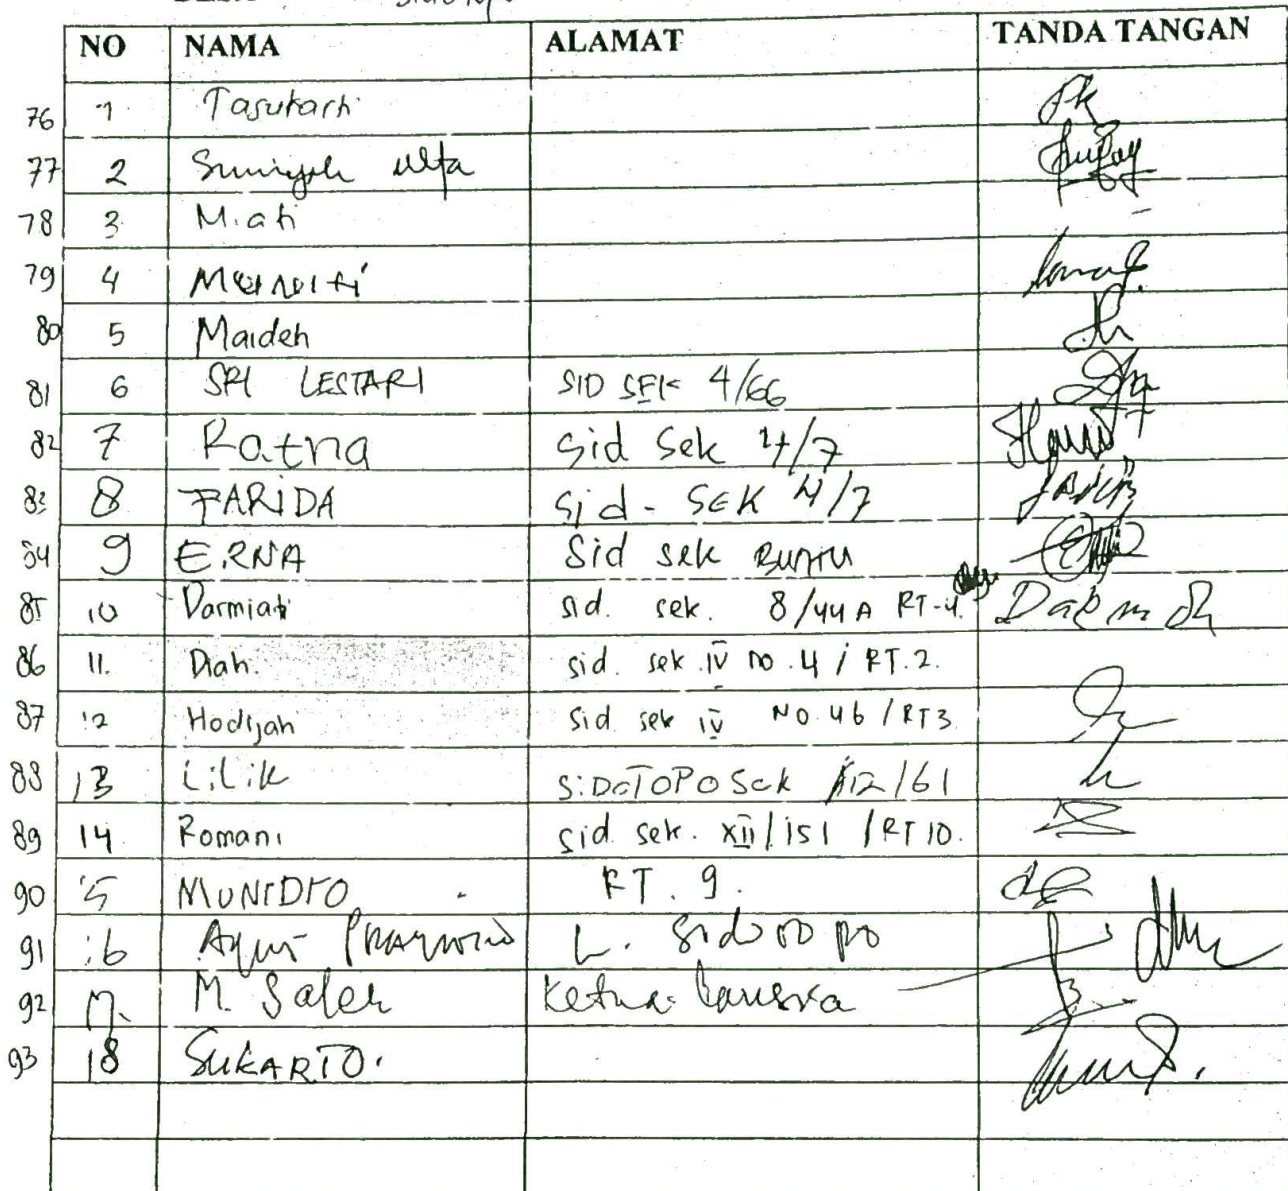 NO NAMA ALAMAT TANDA TANGAN
76 1 Tasukarti
77 2 Sumiyah Ulfa
78 3 Miati -
79 4
80 5 Maideh
81 6 SRI LESTARI SID SEK 4/66
82 7 Ratna Sid Sek 4/7
83 8 FARIDA Sid - SEK 4/7
84 9 ERNA Sid sek BUNTU
85 10 Darmiati sid. sek. 8/44 A RT-4.
86 11. Diah. sid. sek. IV no. 4 / RT. 2.
87 12 Hodijah sid sek IV NO. 46 / RT3
88 13 LiLiK SiDOTOPO Sek 12/61
89 14 Romani sid. sek. XII/151 / RT 10.
90 15 MUNIDTO RT. 9.
91 16 Agus L. Sidotopo
92 17. M. Saleh Ketua
93 18 SUKARTO.